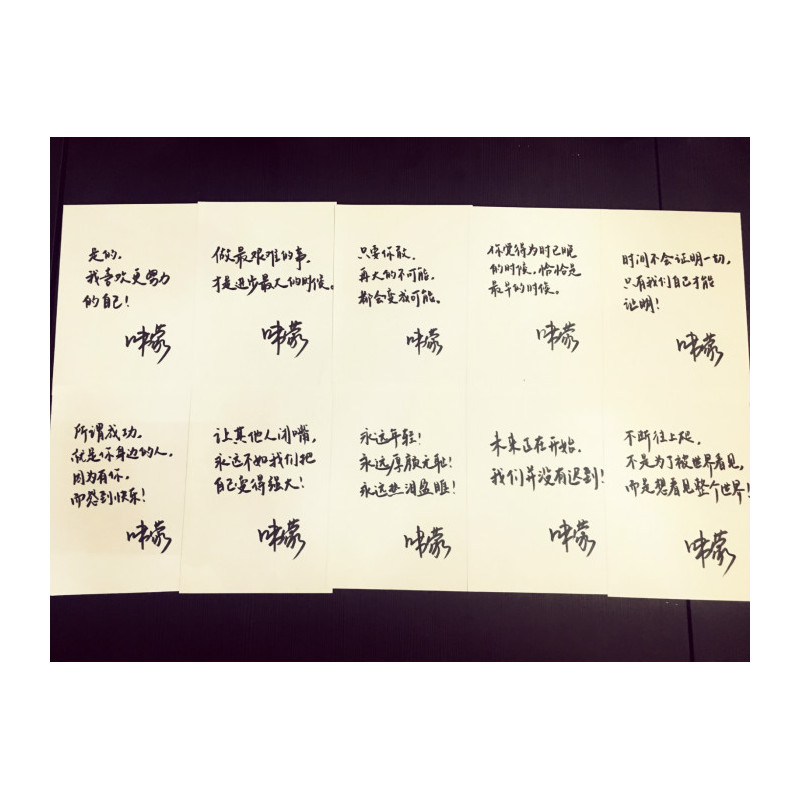 是的，
我喜欢更努力
的自己！
咪蒙
做最艰难的事，
才是进步最大的时候。
咪蒙
只要你敢，
再大的不可能，
都会变成可能。
咪蒙
你觉得为时已晚
的时候，恰恰是
最早的时候。
咪蒙
时间不会证明一切，
只有我们自己才能
证明！
咪蒙
所谓成功，
就是你身边的人，
因为有你，
而感到快乐！
咪蒙
让其他人闭嘴，
永远不如我们把
自己变得强大！
咪蒙
永远年轻！
永远厚颜无耻！
永远热泪盈眶！
咪蒙
未来正在开始，
我们并没有迟到！
咪蒙
不断往上爬，
不是为了被世界看见，
而是想看见整个世界！
咪蒙